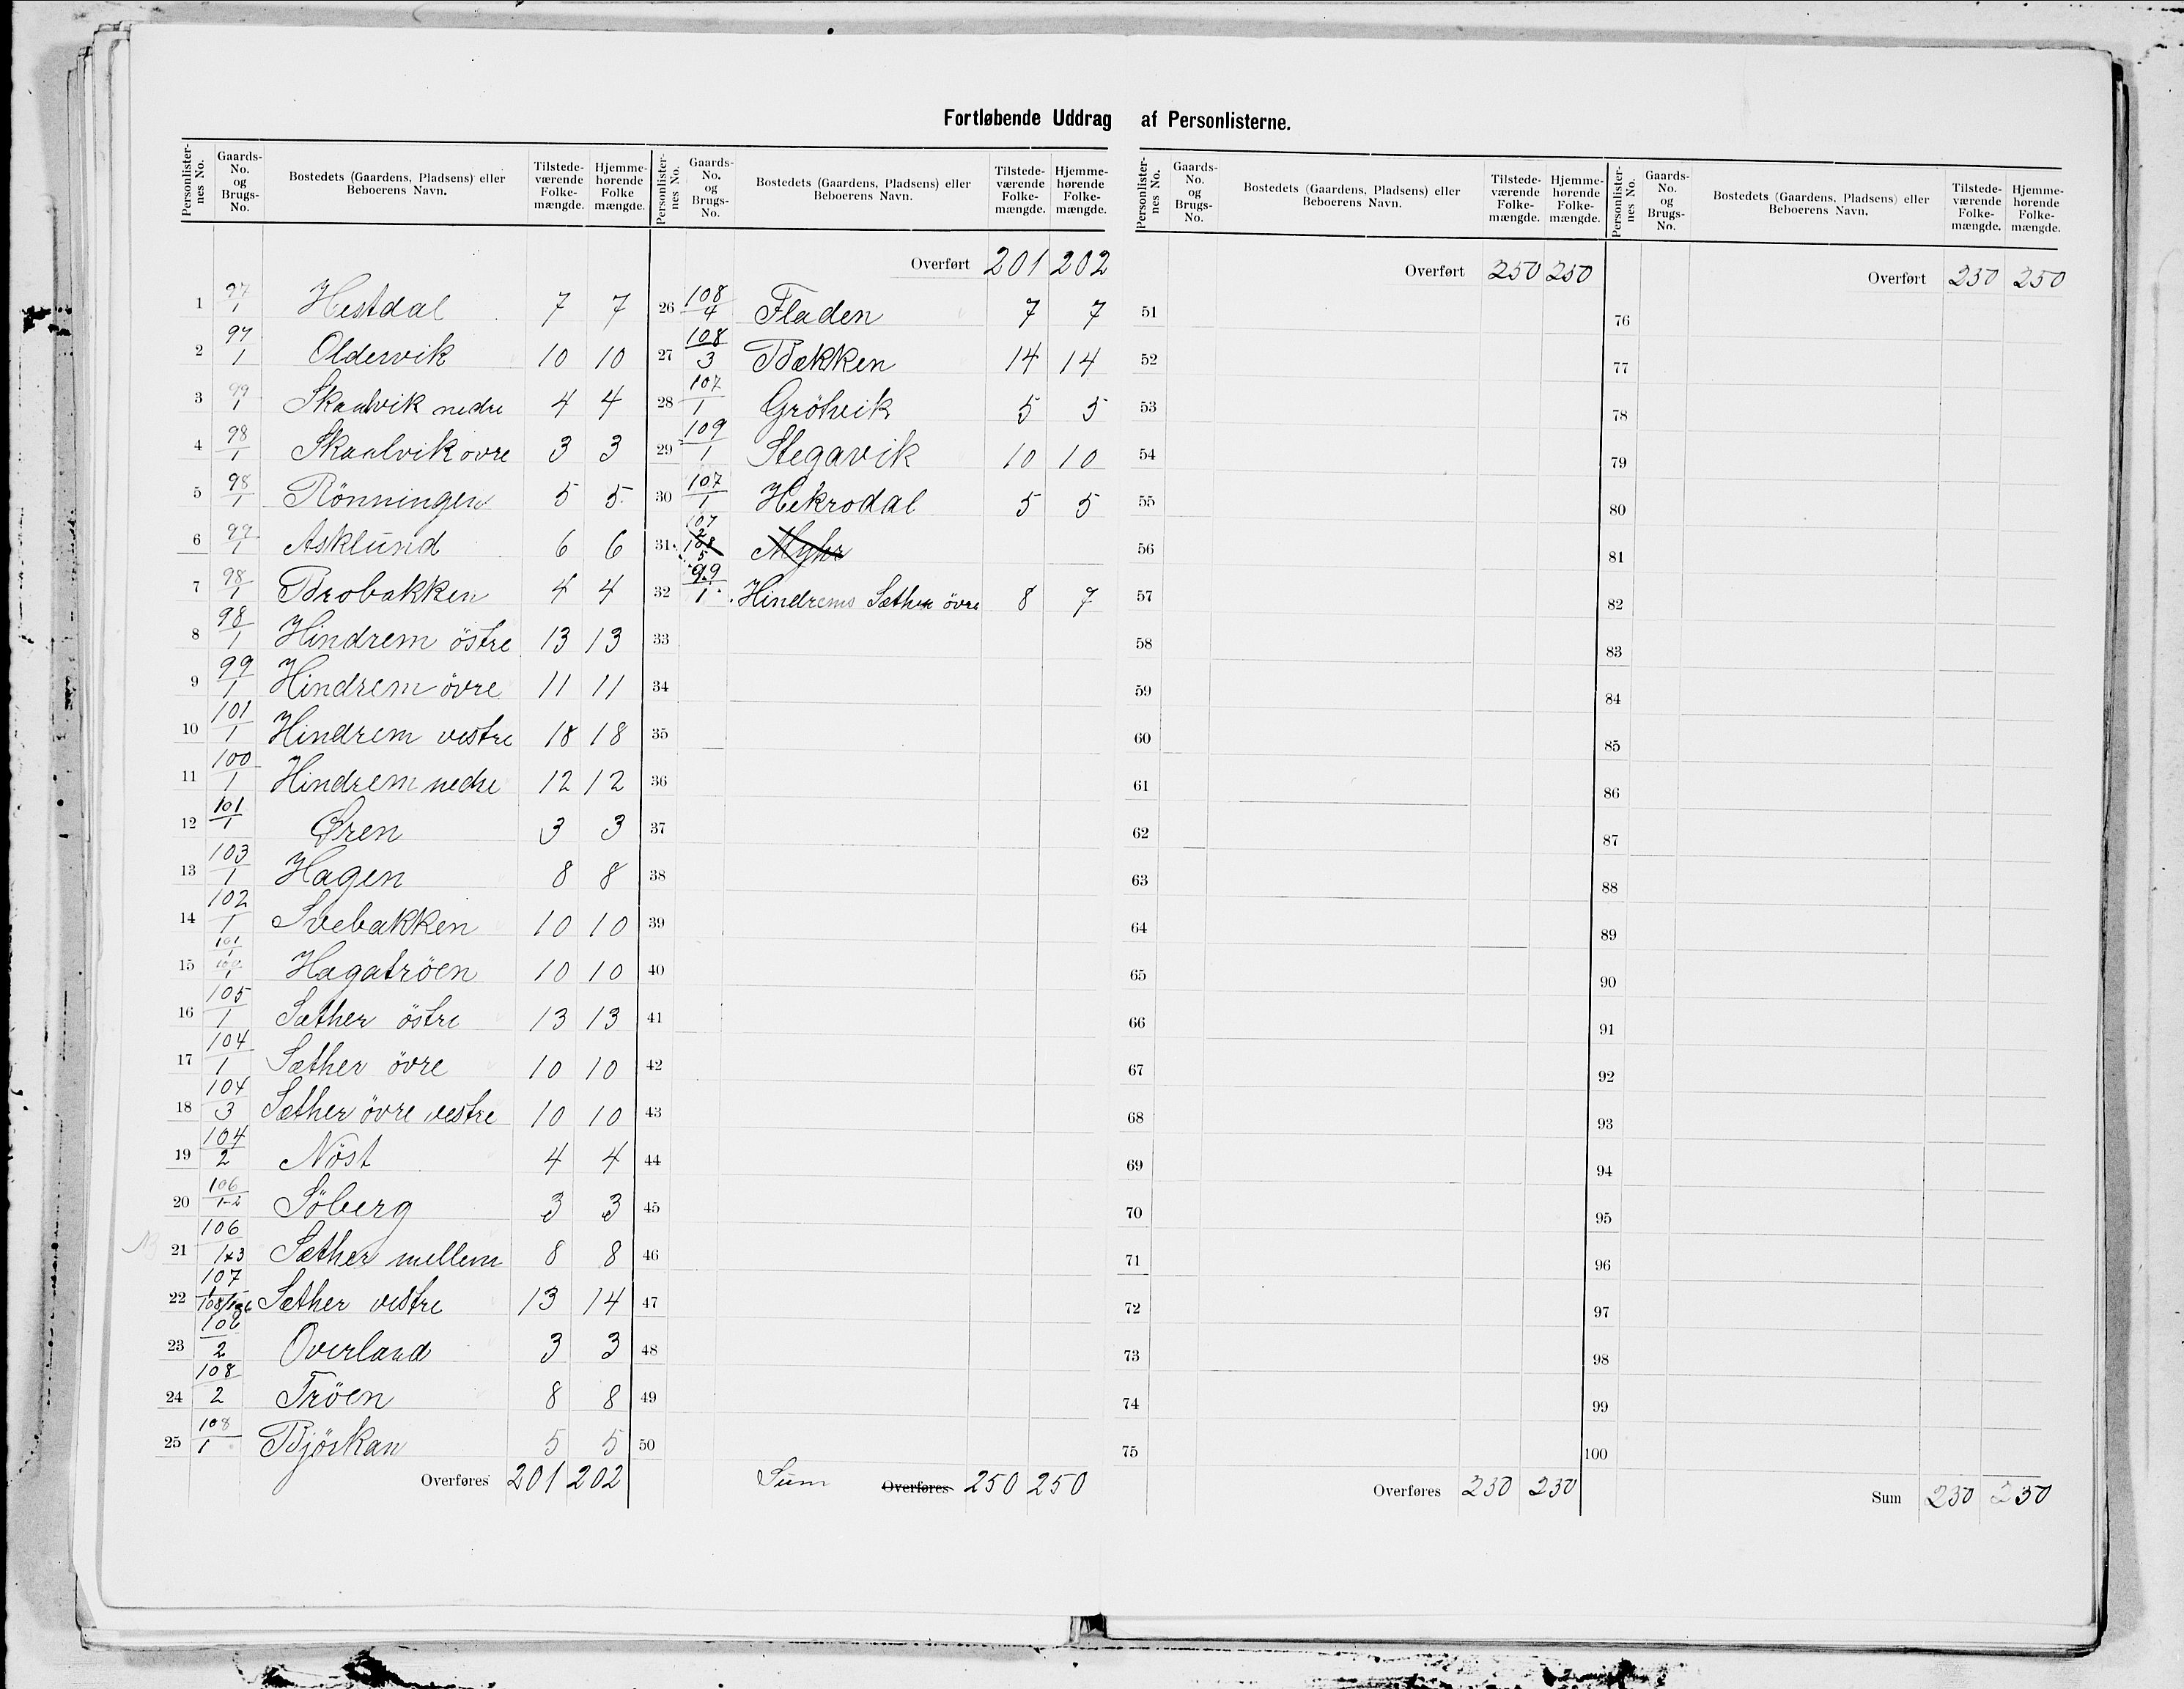 Fortløbende Uddrag af Personlisterne.
Personlister-nes No. Gaards-No. og Brugs-No. Bostedets (Gaardens, Pladsens) eller Beboerens Navn. Tilstede-værende Folke-mængde. Hjemme-hørende Folke mængde.
1 97/1 Hestdal 7 7
2 97/1 Oldervik 10 10
3 99/1 Skaalvik nedre 4 4
4 98/1 Skaalvik ovre 3 3
5 98/1 Rönningen 5 5
6 99/1 Asklund 6 6
7 98/1 Brobakken 4 4
8 98/1 Hindrem östre 13 13
9 99/1 Hindrem övre 11 11
10 101/1 Hindrem vestre 18 18
11 100/1 Hindrem nedre 12 12
12 101/1 Øren 3 3
13 103/1 Hagen 8 8
14 102/1 Svebakken 10 10
15 101/1 Hagatröen 10 10
16 105/1 Sæther östre 13 13
17 104/1 Sæther övre 10 10
18 104/3 Sæther övre vestre 10 10
19 104/2 Nöst 4 4
20 106/1-2 Söberg 3 3
21 106/1+3 Sæther mellem 8 8
22 107 Sæther vestre 13 14
23 106/2 Overland 3 3
24 108/2 Tröen 8 8
25 108/1 Björkan 5 5
Overføres 201 202
Personlister-nes No. Gaards-No. og Brugs-No. Bostedets (Gaardens, Pladsens) eller Beboerens Navn. Tilstede-værende Folke-mængde. Hjemme-hørende Folke-mængde.
Overført 201 202
26 108/4 Fladen 7 7
27 108/3 Bækken 14 14
28 107/1 Grötvik 5 5
29 109/1 Stegavik 10 10
30 107/1 Hekrodal 5 5
31 107/2 108/5 Myhr
32 99/1 Hindrems Sæther övre 8 7
33
34
35
36
37
38
39
40
41
42
43
44
45
46
47
48
49
50
Sum Overføres 250 250
Personlister-nes No. Gaards-No. og Brugs-No. Bostedets (Gaardens, Pladsens) eller Beboerens Navn. Tilstede-værende Folke-mængde. Hjemme-hørende Folke-mængde.
Overført 250 250
51
52
53
54
55
56
57
58
59
60
61
62
63
64
65
66
67
68
69
70
71
72
73
74
75
Overføres 250 250
Personlister-nes No. Gaards-No. og Brugs-No. Bostedets (Gaardens, Pladsens) eller Beboerens Navn. Tilstede-værende Folke-mængde. Hjemme-hørende Folke-mængde.
Overført 250 250
76
77
78
79
80
81
82
83
84
85
86
87
88
89
90
91
92
93
94
95
96
97
98
99
100
Sum 250 250